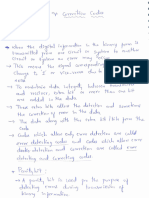 Correction Codes
→ When the digital information in the binary form is
transmitted from one circuit or system to another
circuit or system an error may occur.
→ This means the signal corresponding to
change to 1 or vice-versa due to
→ To maintain data integrity between
and receiver, extra bit or more than
are added in the data.
→ These extra bits allow the detection and sometimes
the correction of error in the data.
→ The data along with the extra bit / bits form the
Code.
→ Codes which allow only error detection are called
error detecting codes and codes which allow error
detection and correction are called error
detecting and correcting codes.
→ Parity bit
→ A parity bit is used for the purpose of
detecting errors during transmission of
binary information.